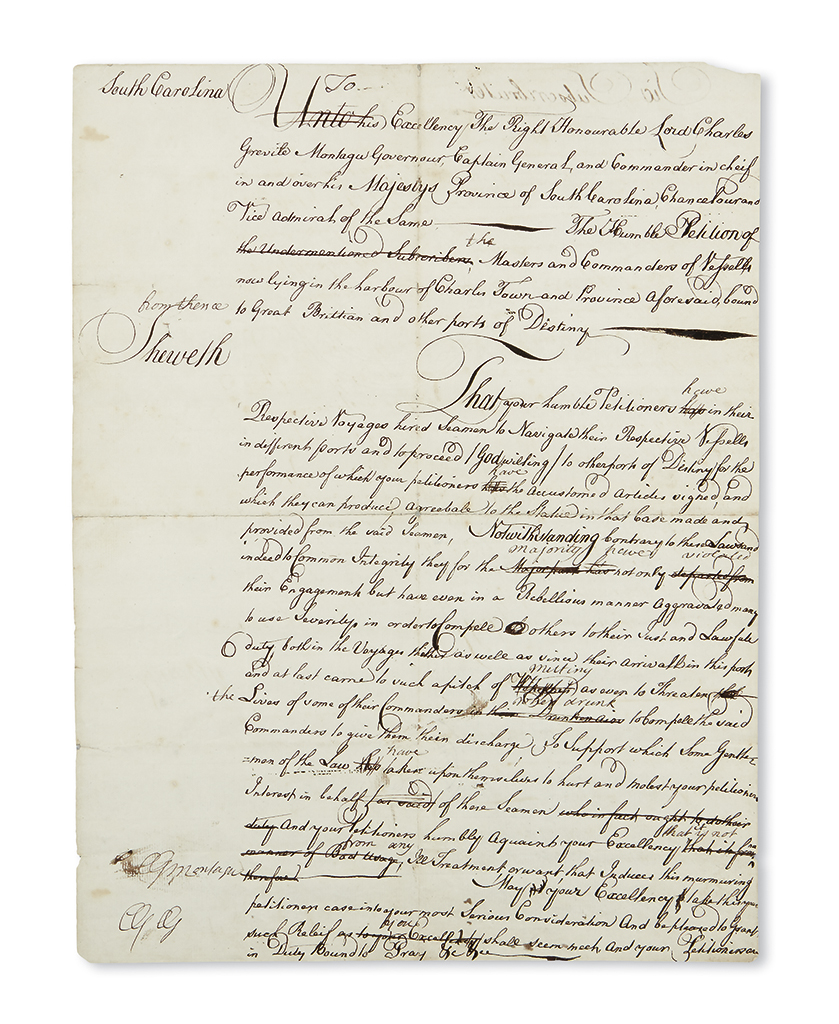 South Carolina
To
Unto his Excellency The Right Honourable Lord Charles
Grevile Montagu Governour, Captain General, and Commander in cheif
in and over his Majestys Province of South Carolina, Chancelour and
Vice Admiral of the Same The Humble Petition of
the
the Undermentioned Subscribers, Masters and Commanders of Vessells
now lying in the harbour of Charles Town and Province aforesaid, bound
from thence
to Great Brittian and other ports of Destiny
Sheweth
have
That your humble Petitioners in their
Respective Voyages hired Seamen to Navigate their Respective Vessells
in different ports and to proceed /God willing/ to other ports of Destiny for the
have
performance of which your petitioners the Accustomed Articles signed, and
which they can produce Agreeable to the Statue in that Case made and
provided from the said Seamen, Notwithstanding Contrary to these Laws and
majority have violated
indeed to Common Integrity they for the Major part has not only departed from
their Engagement but have even in a Rebellious manner Aggravated many
to use Severitys in order to Compell others to their Just and Lawfull
duty, both in the Voyages thither as well as since their arrivall in this port
mutiny
and at last came to such a pitch of as even to Threaten
the when drunk
Lives of some of their Commanders in their Drunkenness to Compell the said
Commanders to give them their discharge, To Support which Some Gentle-
have
=men of the Law taken upon themselves to hurt and molest your petitioners
Interest in behalf (as said) of these Seamen who in fact ought to do their
that is not
duty And your Petitioners humbly Aquaint your Excellency that it is from
from any
manner of Bad Usage, Ill Treatment or want that Induces this murmuring
therfore
May it your Excellency take this your
CG Montagu
petitioners case into your most Serious Consideration And be pleased to Grant
CG CG
you
such Releif as to your Excellency shall seem meet, And your Petitioners as
in Duty Bound to Pray &c &c